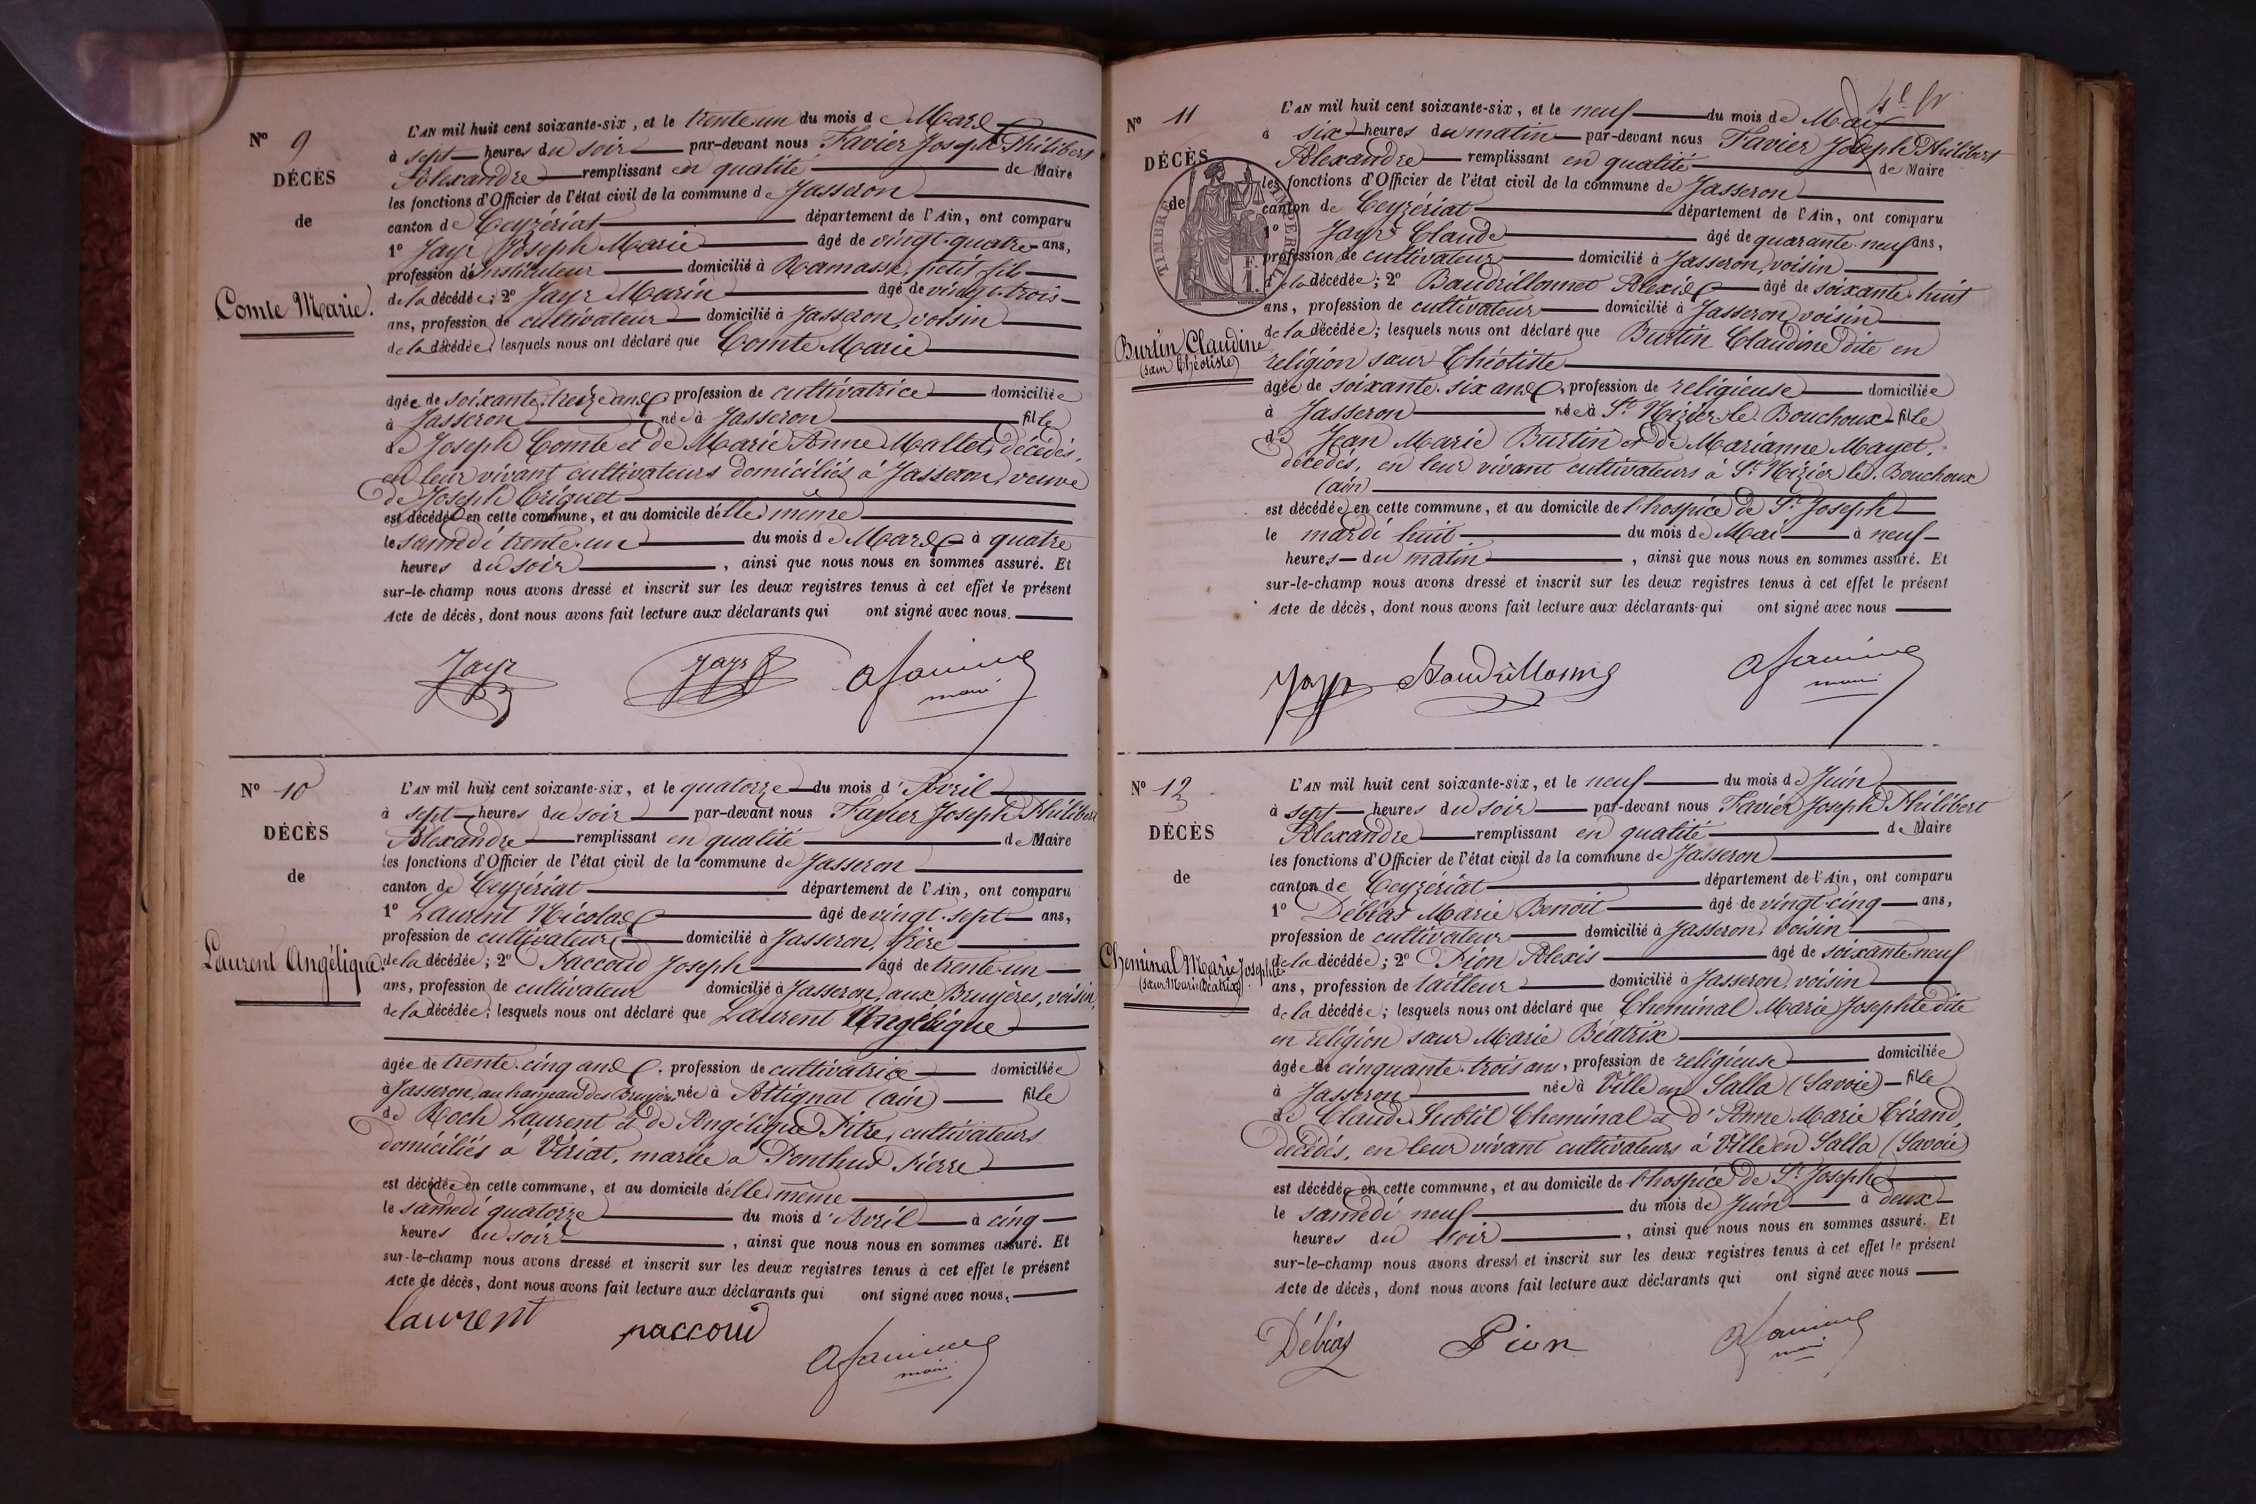 Nº 9
DÉCÈS
de
Comte Marie.
L'AN mil huit cent soixante-six, et le trente un du mois de Mars
à sept heures du soir par-devant nous Favier Joseph Philibert
Alexandre remplissant en qualité de Maire
les fonctions d'Officier de l'état civil de la commune de Jasseron
canton de Ceyzériat département de l'Ain, ont comparu
1º Jayr Joseph Marie âgé de vingt-quatre ans,
profession de Instituteur domicilié à Ramasse, petit fils
de la décédée; 2º Jayr Marin âgé de vingt-trois
ans, profession de cultivateur domicilié à Jasseron, voisin
de la décédée; lesquels nous ont déclaré que Comte Marie
âgée de soixante-treize ans, profession de cultivatrice domiciliée
à Jasseron née à Jasseron fille
de Joseph Comte et de Marie Anne Mallet, décédés,
en leur vivant cultivateurs domiciliés à Jasseron, veuve
de Joseph Criquet
est décédée en cette commune, et au domicile d'elle même
le samedi trente-un du mois de Mars à quatre
heures du soir, ainsi que nous nous en sommes assuré. Et
sur-le-champ nous avons dressé et inscrit sur les deux registres tenus à cet effet le présent
Acte de décès, dont nous avons fait lecture aux déclarants qui ont signé avec nous.
Jayr Jayr
maire
Nº 10
DÉCÈS
de
Laurent Angélique.
L'AN mil huit cent soixante-six, et le quatorze du mois d'Avril
à sept heures du soir par-devant nous Favier Joseph Philibert
Alexandre remplissant en qualité de Maire
les fonctions d'Officier de l'état civil de la commune de Jasseron
canton de Ceyzériat département de l'Ain, ont comparu
1º Laurent Nicolas âgé de vingt-sept ans,
profession de cultivateur domicilié à Jasseron, frère
de la décédée; 2º Paccoud Joseph âgé de trente-un
ans, profession de cultivateur domicilié à Jasseron, aux Bruyères, voisin,
de la décédée; lesquels nous ont déclaré que Laurent Angélique
âgée de trente-cinq ans, profession de cultivatrice domiciliée
à Jasseron, au hameau des Bruyères née à Attignat (ain) fille
de Roch Laurent et de Angélique Pitre, cultivateurs
domiciliés à Viriat, mariée à Ponthus Pierre
est décédée en cette commune, et au domicile d'elle même
le samedi quatorze du mois d'Avril à cinq
heures du soir, ainsi que nous nous en sommes assuré. Et
sur-le-champ nous avons dressé et inscrit sur les deux registres tenus à cet effet le présent
Acte de décès, dont nous avons fait lecture aux déclarants qui ont signé avec nous.
laurent paccoud
maire
Nº 11
DÉCÈS
de
TIMBRE IMPERIAL
1 F.
Burtin Claudine
(sœur Théotiste)
L'AN mil huit cent soixante-six, et le neuf du mois de Mai
à six heures du matin par-devant nous Favier Joseph Philibert
Alexandre remplissant en qualité de Maire
les fonctions d'Officier de l'état civil de la commune de Jasseron
canton de Ceyzériat département de l'Ain, ont comparu
1º Jayr Claude âgé de quarante-neuf ans,
profession de cultivateur domicilié à Jasseron, voisin
de la décédée; 2º Baudrillonnet Alexis âgé de soixante-huit
ans, profession de cultivateur domicilié à Jasseron, voisin
de la décédée; lesquels nous ont déclaré que Burtin Claudine dite en
religion sœur Théotiste
âgée de soixante-six ans, profession de religieuse domiciliée
à Jasseron née à St Nizier-le-Bouchoux fille
de Jean Marie Burtin et de Marianne Mayet,
décédés, en leur vivant cultivateurs à St Nizier le Bouchoux
(ain)
est décédée en cette commune, et au domicile de l'hospice de St Joseph
le mardi huit du mois de Mai à neuf
heures du matin, ainsi que nous nous en sommes assuré. Et
sur-le-champ nous avons dressé et inscrit sur les deux registres tenus à cet effet le présent
Acte de décès, dont nous avons fait lecture aux déclarants qui ont signé avec nous
Jayr
maire
Nº 12
DÉCÈS
de
Cheminal Marie Josephte
(sœur Marie Béatrix)
L'AN mil huit cent soixante-six, et le neuf du mois de Juin
à sept heures du soir par-devant nous Favier Joseph Philibert
Alexandre remplissant en qualité de Maire
les fonctions d'Officier de l'état civil de la commune de Jasseron
canton de Ceyzériat département de l'Ain, ont comparu
1º Débias Marie Benoit âgé de vingt-cinq ans,
profession de cultivateur domicilié à Jasseron, voisin
de la décédée; 2º Pion Alexis âgé de soixante-neuf
ans, profession de tailleur domicilié à Jasseron, voisin
de la décédée; lesquels nous ont déclaré que Cheminal Marie Josephte dite
en religion sœur Marie Béatrix
âgée de cinquante-trois ans, profession de religieuse domiciliée
à Jasseron née à Ville en Salla (Savoie) fille
de Claude Subtil Cheminal et d'Anne Marie Girand,
décédés, en leur vivant cultivateurs à Ville en Salla (Savoie)
est décédée en cette commune, et au domicile de l'hospice de St Joseph
le samedi neuf du mois de Juin à deux
heures du soir, ainsi que nous nous en sommes assuré. Et
sur-le-champ nous avons dressé et inscrit sur les deux registres tenus à cet effet le présent
Acte de décès, dont nous avons fait lecture aux déclarants qui ont signé avec nous
Débias Pion
maire